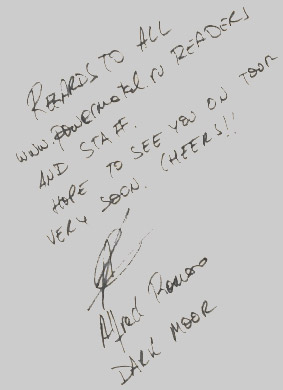 REGARDS TO ALL
www.powermetal.ru READERS
AND STAFF.
HOPE TO SEE YOU ON TOUR
VERY SOON. CHEERS!!
Alfred Romero
DARK MOOR